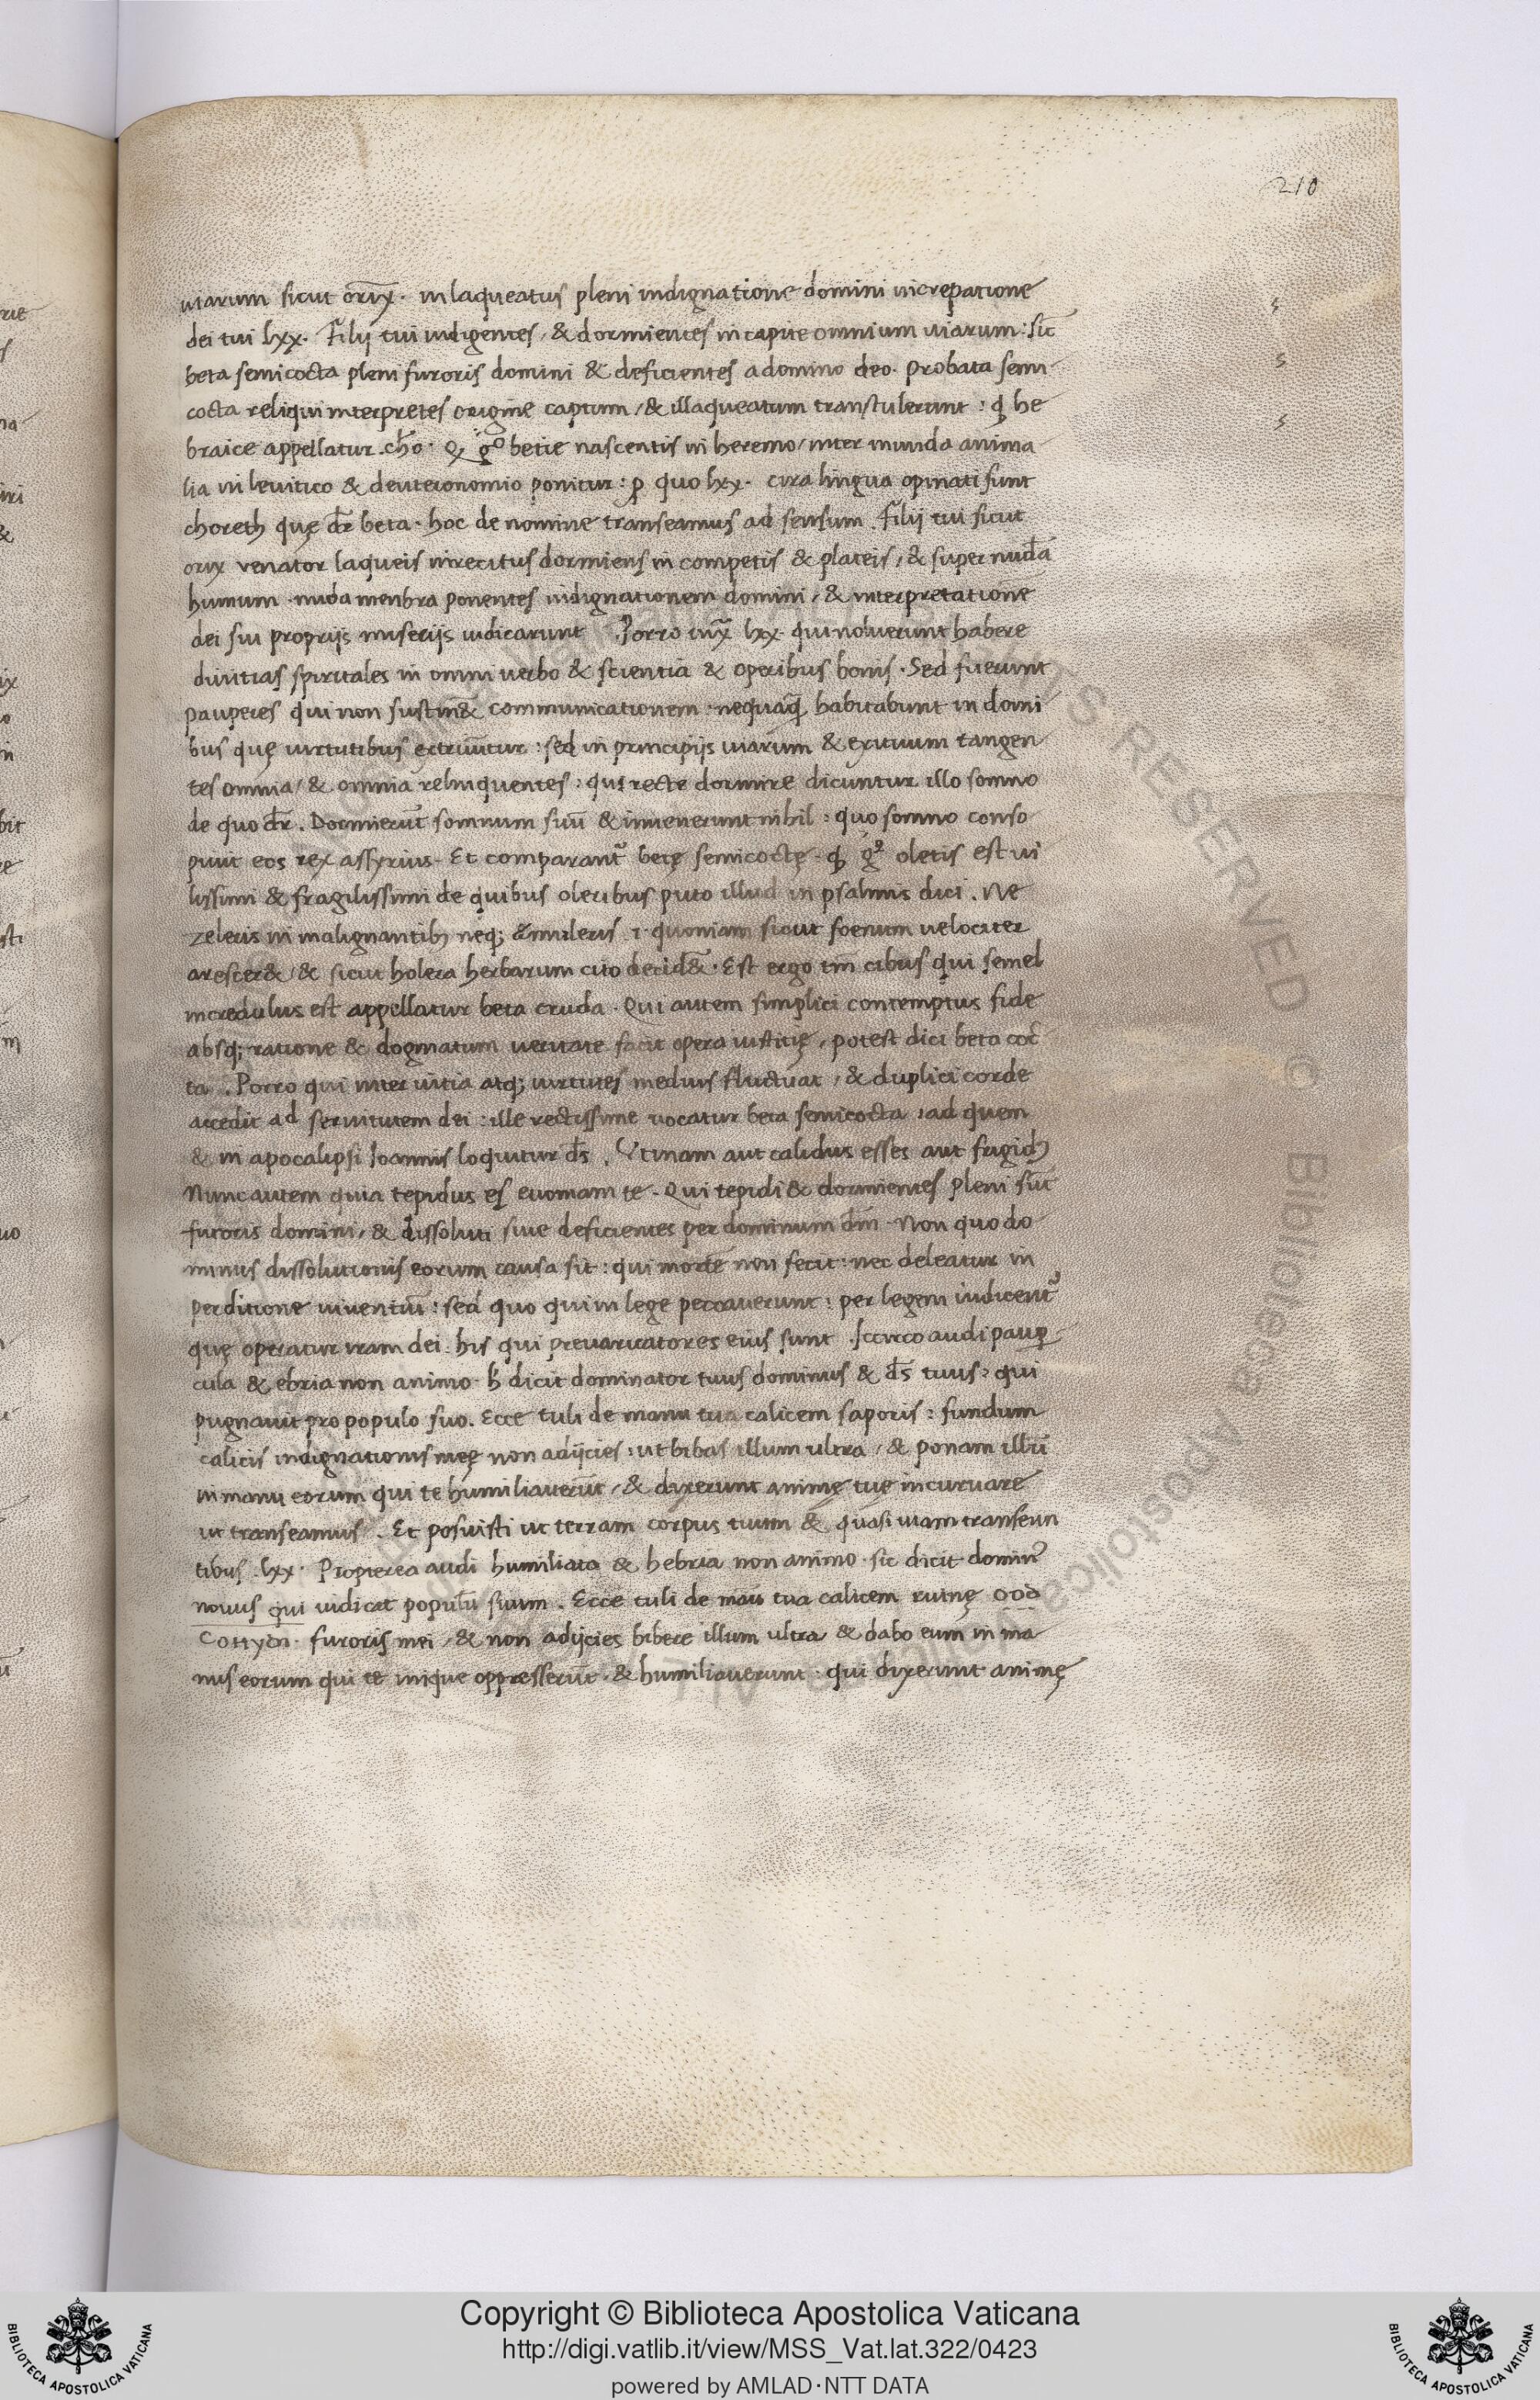 210
uiarum sicut orix̄. inlaqueatus pleni indignatione domini increpatione
dei tui lxx. Filij tui indigentes, & dormientes in capite omnium uiarum: sic̄
beta semicocta pleni furoris domini & deficientes a domino deo. probata semi
cocta reliqui interpretes origine captum, & illaqueatum transtulerunt: ꝙ he
braice appellatur. cħo. Q g̈o betie nascentis in heremo, inter munda anima
lia in leuitico & deuteronomio ponitur: ꝓ quo lxx. cira lingua opinati sunt
choreth quę dr̄ beta. hoc de nomine transeamus ad sensum. Filij tui sicut
orix venator laqueis inrecitus dormiens in competis & plateis, & super nudā
humum nuda menbra ponentes indignationem domini, & interpretatione
dei sui proprijs miserijs iudicarunt. Porro iux̄ lxx. qui noluerunt habere
diuitias spiritales in omni uerbo & scientia & operibus bonis. Sed fuerunt
pauperes qui non sustin& communicationem: nequaq̄ habitabunt in domi
bus quę uirtutibus extruūtur: sed in principijs uiarum & exituum tangen
tes omnia, & omnia relinquentes: qui recte dormire dicuntur illo somno
de quo dr̄. Dormierūt somnum suū & inuenerunt nihil: quo somno conso
piuit eos rex assyrius. Et comparant᷑ betę semicoctę. ꝙ gͦ oletis est ui
lissimi & fragilissimi de quibus oleribus puto illud in psalmis dici. Ne
zeleris in malignantibꝫ neqꝫ ęmuleris ɿ. quoniam sicut foenum uelociter
arescer&, & sicut holera herbarum cito decid&. Est ergo tm̄ cibus qui semel
incredulus est appellatur beta cruda. Qui autem simplici contemptus fide
absqꝫ ratione & dogmatum ueritate facit opera iustitię, potest dici beta coc̄
ta. Porro qui inter uitia atqꝫ uirtutes medius fluctuat, & duplici corde
accedit ad seruitutem dei: ille rectissime uocatur beta semicocta, ad quem
& in apocalipsi Joannis loquitur ds̄. Vtinam aut calidus esses aut frigidꝰ
Nunc autem quia tepidus es euomam te. Qui tepidi & dormientes pleni sūt
furoris domini, & dissoluti siue deficientes per dominum dm̄. Non quo do
minus dissolutionis eorum causa sit: qui mortē non fecit: nec deleatur in
perditione uiuentiū: sed quo qui in lege peccauerunt: per legem iudicent᷑
quę operatur iram dei. his qui preuaricatores eius sunt. Iccirco audi paup̱
cula & ebria non animo. h̄ dicit dominator tuus dominus & ds̄ tuus: qui
pugnauit pro populo suo. Ecce tuli de manu tua calicem saporis: fundum
calicis indignationis meę non adijcies: ut bibas illum ultra, & ponam illū
in manu eorum qui te humiliauerūt, & dixerunt animę tuę incuruare
ut transeamus. Et posuisti ut terram corpus tuum & quasi uiam transeun
tibus. lxx. Propterea audi humiliata & hebria non animo. sic dicit dominꝰ
nouus qui iudicat populū suum. Ecce tuli de manu tua calicem ruinę
furoris mei, & non adijcies bibere illum ultra & dabo eum in ma
nus eorum qui te inique oppresserūt, & humiliauerunt: qui dixerunt animę
Copyright © Biblioteca Apostolica Vaticana
http://digi.vatlib.it/view/MSS_Vat.lat.322/0423
powered by AMLAD·NTT DATA
BIBLIOTECA APOSTOLICA VATICANA
BIBLIOTECA APOSTOLICA VATICANA